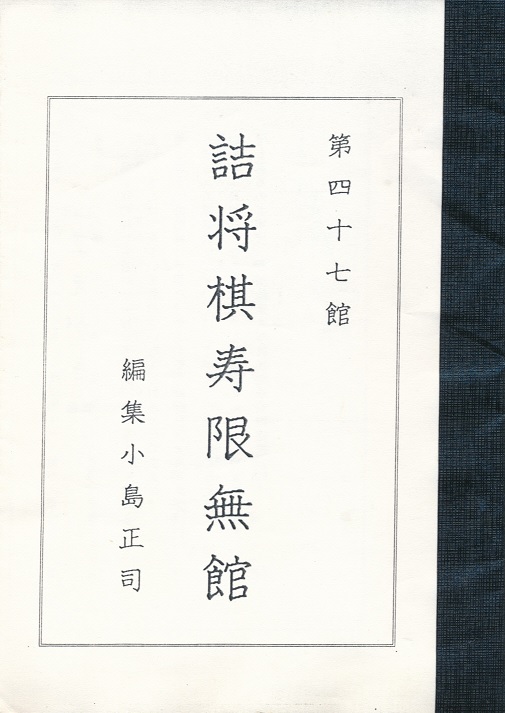 第四十七館
詰将棋寿限無館
編集小島正司